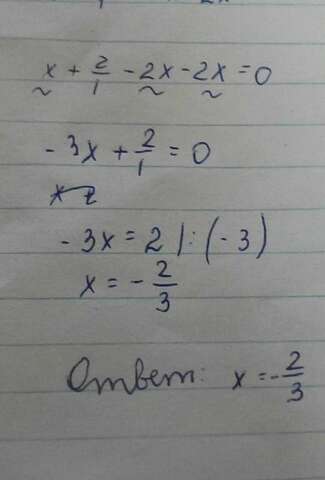 x + 2/1 - 2x - 2x = 0
- 3x + 2/1 = 0
- 3x = 2 | : (- 3)
x = - 2/3
Ответ: x = - 2/3